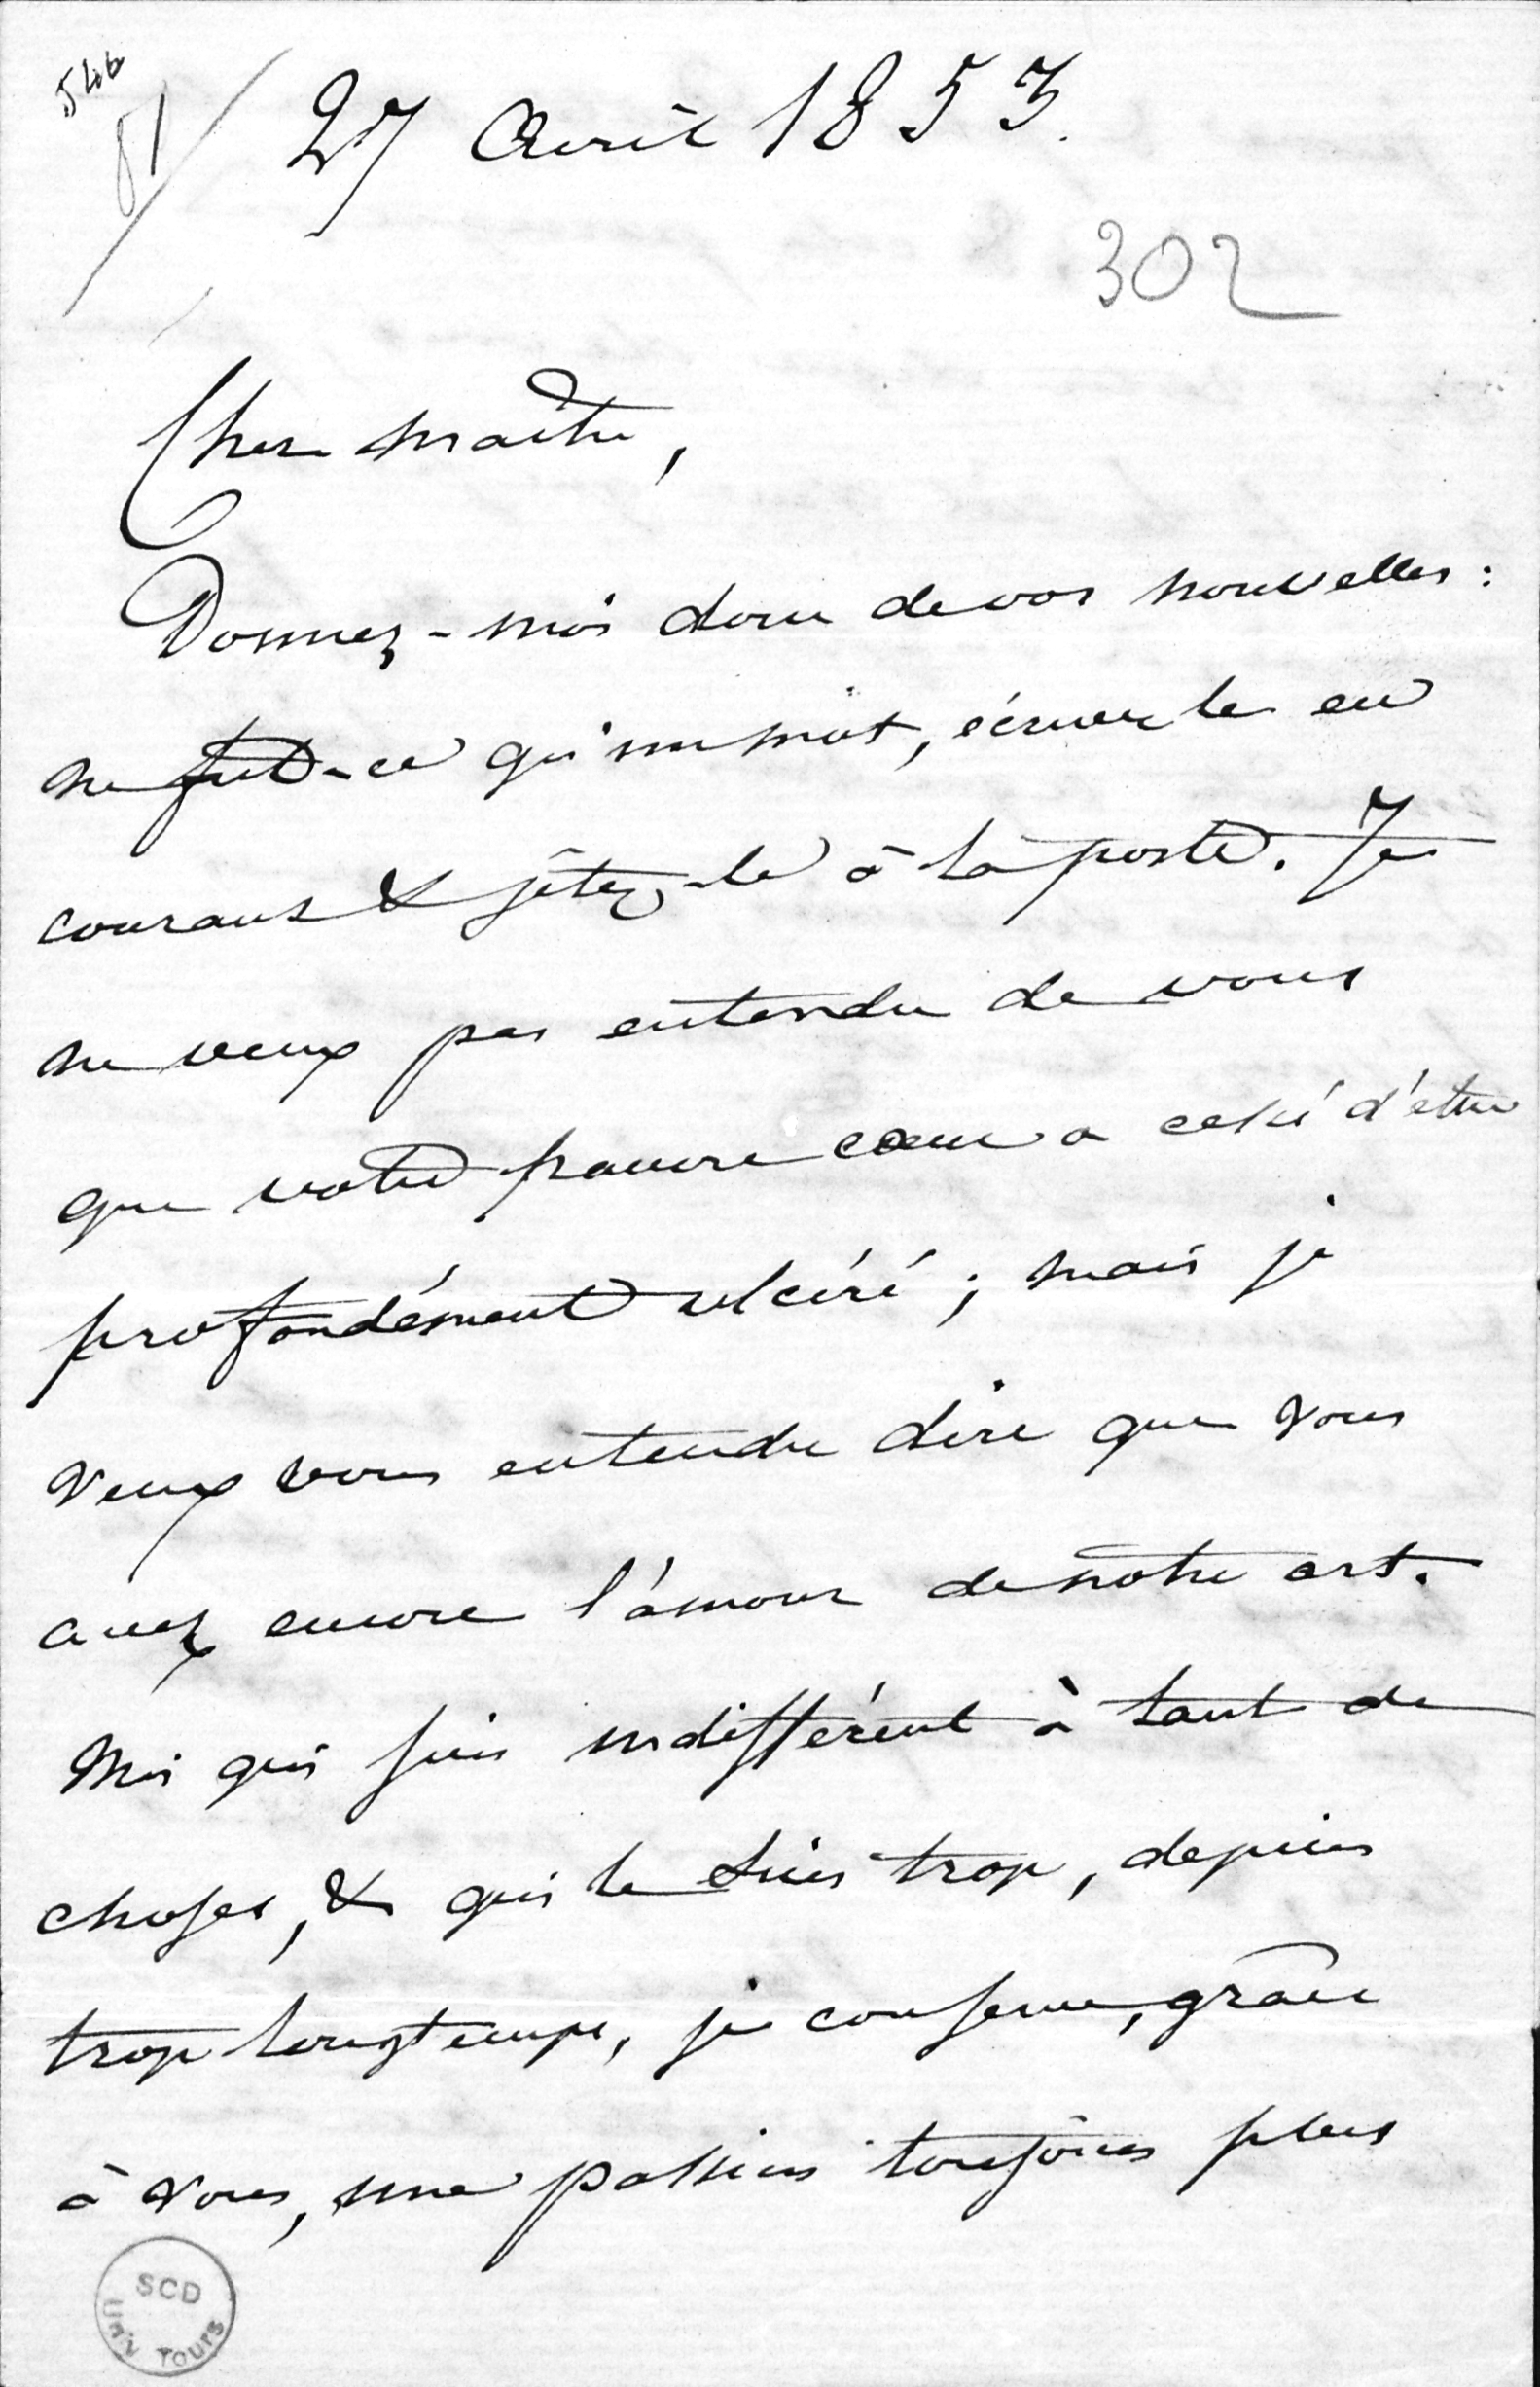 546
81
27 Avril 1853.
302
Cher maître,
Donnez-moi donc de vos nouvelles :
ne fut-ce qu'un mot, écrivez le en
courant & jétez-le à la poste. Je
ne veux pas entendre de vous
que votre pauvre cœur a cessé d'être
profondément ulcéré ; mais je
veux vous entendre dire que vous
avez encore l'amour de notre art.
Moi qui suis indifférent à tant de
choses, & qui le suis trop, depuis
trop longtemps, je conserve, grâce
à vous, une passion toujours plus
SCD
UNIV TOURS